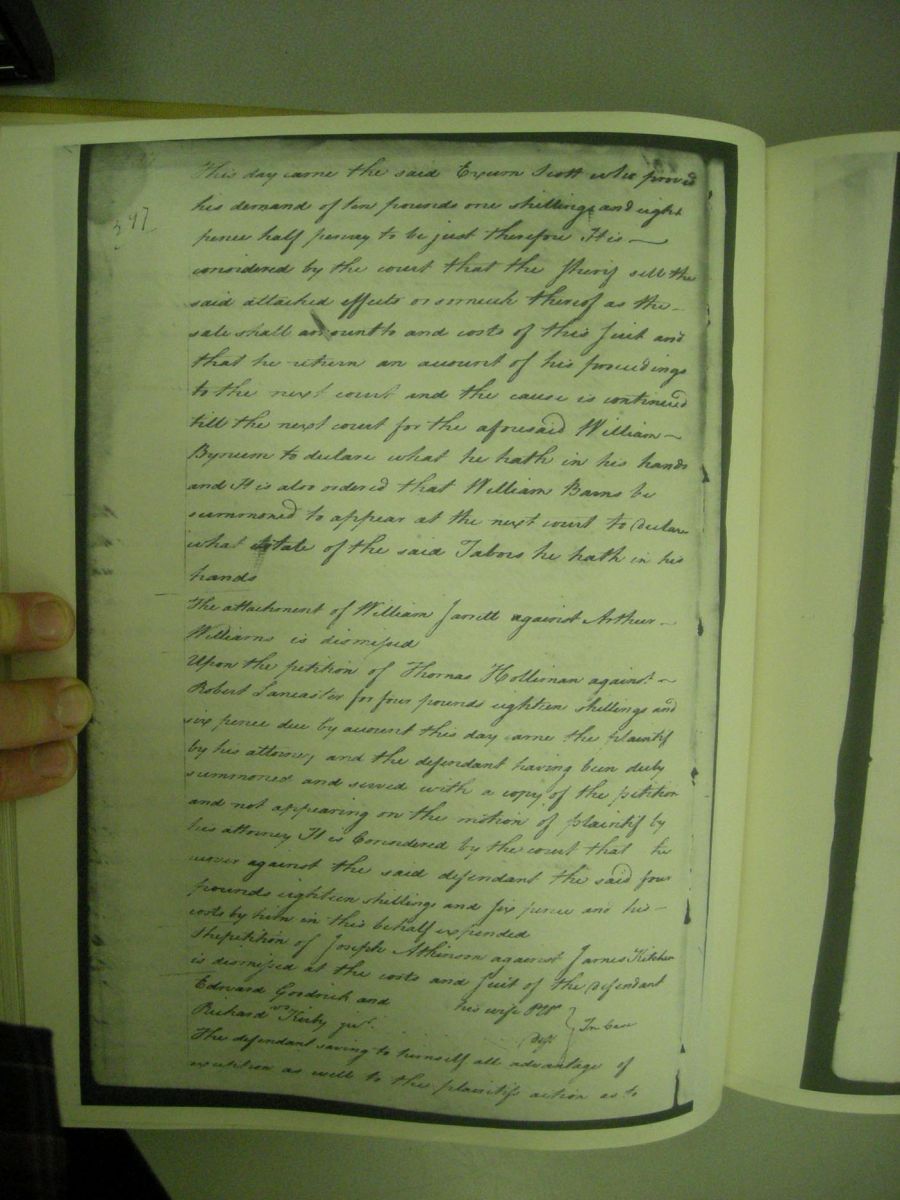 347
This day came the said Exum Scott who proved
his demand of ten pounds one shillings and eight
pence half penney to be just therefore It is
considered by the court that the Sherif sell the
said attached effects or so much thereof as the
sale shall amount to and costs of this suit and
that he return an account of his proceedings
to the next court and the cause is continued
till the next court for the aforesaid William
Byneum to declare what he hath in his hands
and It is also ordered that William Barns be
summoned to appear at the next court to declare
what estate of the said Tabors he hath in his
hands
The attachment of William Jarrell against Arthur
Williams is dismissed
Upon the petition of Thomas Holliman against
Robert Lancaster for four pounds eighteen shillings and
six pence due by account this day came the plaintif
by his attorney and the defendant having been duly
summoned and served with a copy of the petition
and not appearing on the motion of plaintif by
his attorney It is Considered by the court that he
recover against the said defendant the said four
pounds eighteen shillings and six pence and his
costs by him in this behalf expended
The petition of Joseph Atkinson against James Kitchen
is dismissed at the costs and suit of the defendant
Edward Goodrich and his wife
Richard Kirby junr. Deft } In Case
The defendant saving to himself all advantage of
exception as well to the plaintifs action as to